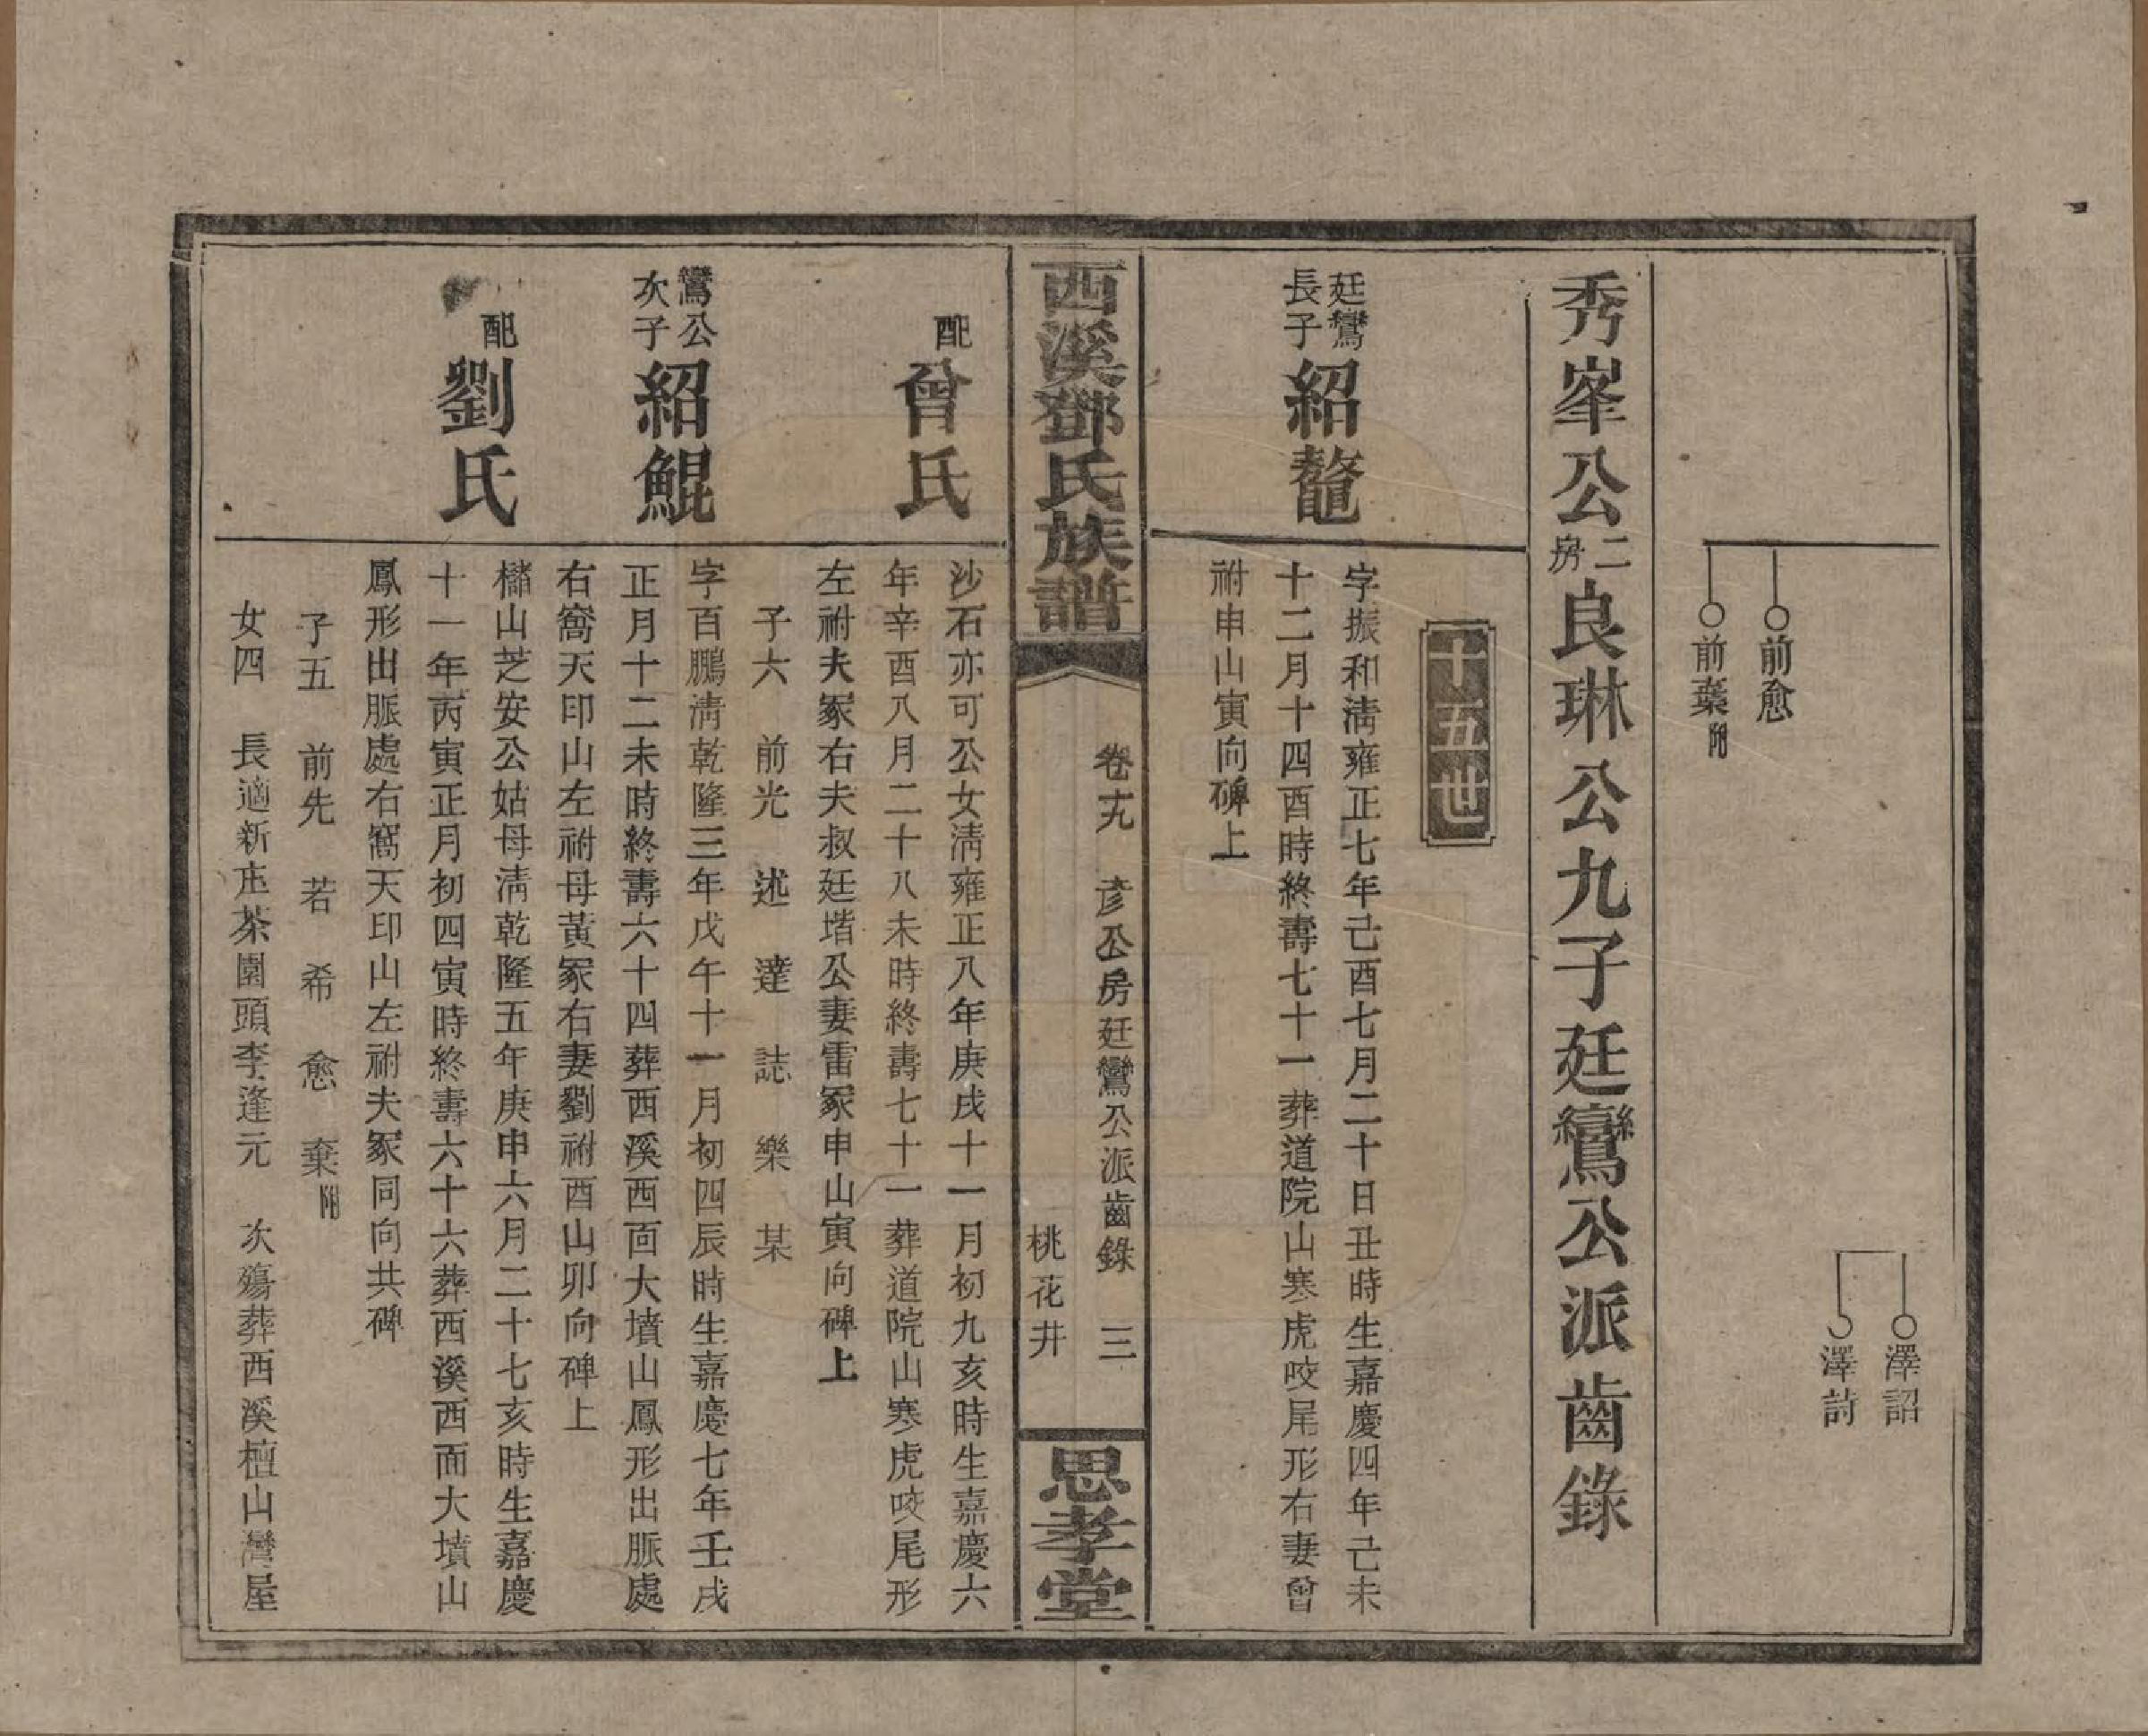 澤詔
澤詩
前愈
前棄附
秀峯公二房良琳公九子廷鸞公派齒錄
十五世
廷鸞長子
紹鼇
字振和淸雍正七年己酉七月二十日丑時生嘉慶四年己未
十二月十四酉時終壽七十一葬道院山寒虎咬尾形右妻曾
祔申山寅向碑上
西溪鄧氏族譜
卷十九 彥公房廷鸞公派齒錄 三
桃花井
思孝堂
配
曾氏
沙石亦可公女淸雍正八年庚戌十一月初九亥時生嘉慶六
年辛酉八月二十八未時終壽七十一葬道院山寒虎咬尾形
左祔夫冢右夫叔廷堦公妻雷冢申山寅向碑上
子六 前光 述 達 誌 樂 某
鸞公次子
紹鯤
字百鵬淸乾隆三年戊午十一月初四辰時生嘉慶七年壬戌
正月十二未時終壽六十四葬西溪西面大墳山鳳形出脈處
右窩天印山左祔母黃冢右妻劉祔酉山卯向碑上
配
劉氏
櫧山芝安公姑母淸乾隆五年庚申六月二十七亥時生嘉慶
十一年丙寅正月初四寅時終壽六十六葬西溪西面大墳山
鳳形出脈處右窩天印山左祔夫冢同向共碑
子五 前先 若 希 愈 棄附
女四 長適新庄茶園頭李逢元 次殤葬西溪檀山灣屋